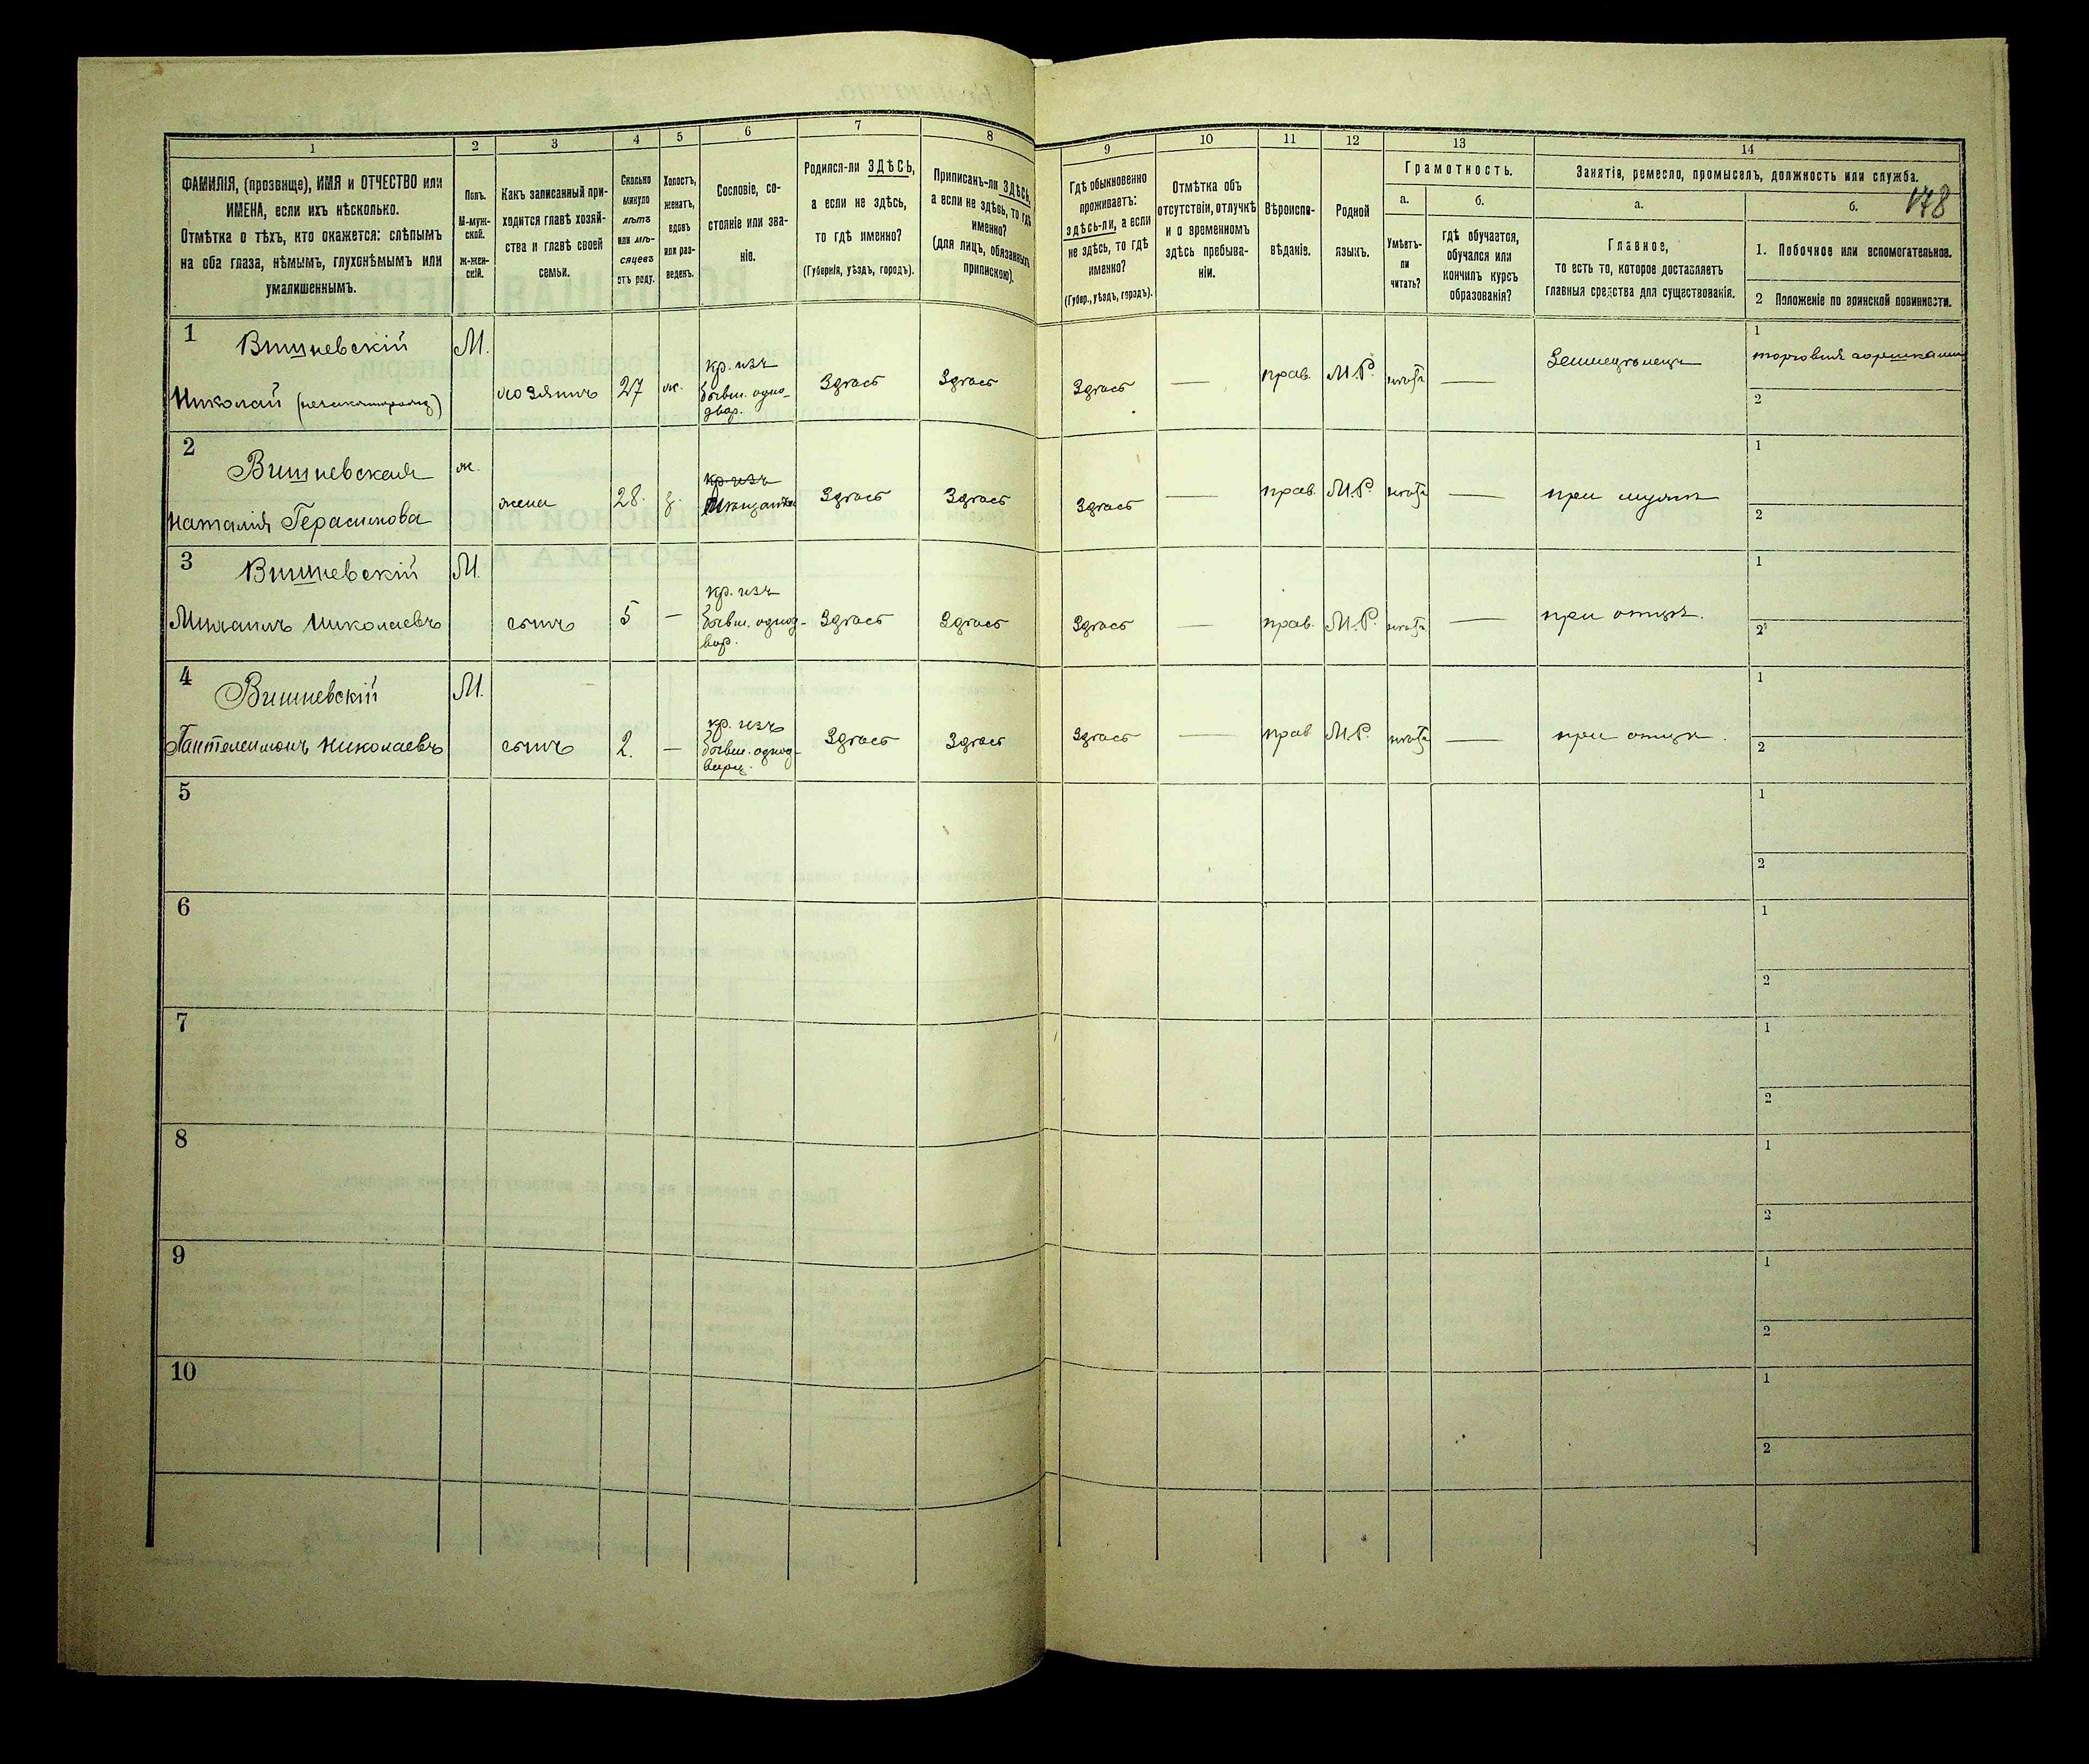 178
1 2 3 4 5 6 7 8 9 10 11 12 13 14
ФАМИЛІЯ, (прозвище), ИМЯ и ОТЧЕСТВО или
ИМЕНА, если ихъ нѣсколько.
Отмѣтка о тѣхъ, кто окажется: слѣпымъ
на оба глаза, нѣмымъ, глухонѣмымъ или
умалишеннымъ.
Полъ.
М-муж-
ской.
Ж-жен-
скій.
Какъ записанный при-
ходится главѣ хозяй-
ства и главѣ своей
семьи.
Сколько
минуло
лѣтъ
или мѣ-
сяцевъ
отъ роду.
Холостъ,
женатъ,
вдовъ
или раз-
веденъ.
Сословіе, со-
стояніе или зва-
ніе.
Родился-ли ЗДѢСЬ,
а если не здѣсь,
то гдѣ именно?
(Губернія, уѣздъ, городъ).
Приписанъ-ли ЗДѢСЬ,
а если не здѣсь, то гдѣ
именно?
(для лицъ, обязанныхъ
припискою).
Гдѣ обыкновенно
проживаетъ:
здѣсь-ли, а если
не здѣсь, то гдѣ
именно?
(Губер., уѣздъ, городъ).
Отмѣтка объ
отсутствіи, отлучкѣ
и о временномъ
здѣсь пребыва-
ніи.
Вѣроиспо-
вѣданіе.
Родной
языкъ.
Грамотность.
а.
Умѣетъ-
ли
читать?
б.
гдѣ обучается,
обучался или
кончилъ курсъ
образованія?
Занятія, ремесло, промыселъ, должность или служба.
а.
Главное,
то есть то, которое доставляетъ
главныя средства для существованія.
б.
1. Побочное или вспомогательное.
2 Положеніе по воинской повинности.
1 Вишневскій М.
Николай хозяинъ 27 ж. кр. изъ бывш. одно-
двор. Здѣсь Здѣсь Здѣсь — прав. М.Р. — Земледѣлецъ 1 торговля горшками
2
2 Вишневская ж.
Наталія Герасимова жена 28. з. кр. изъ
Здѣсь Здѣсь Здѣсь — прав. М.Р. — при мужѣ 1
2
3 Вишневскій М.
Михаилъ Николаевъ сынъ 5 — кр. изъ
бывш. однод-
вор. Здѣсь Здѣсь Здѣсь — прав. М.Р. — при отцѣ. 1
2
4 Вишневскій М.
Пантелеимонъ Николаевъ сынъ 2. — кр. изъ
бывш. однод-
ворц. Здѣсь Здѣсь Здѣсь — прав М.Р. — при отцѣ. 1
2
5 1
2
6 1
2
7 1
2
8 1
2
9 1
2
10 1
2